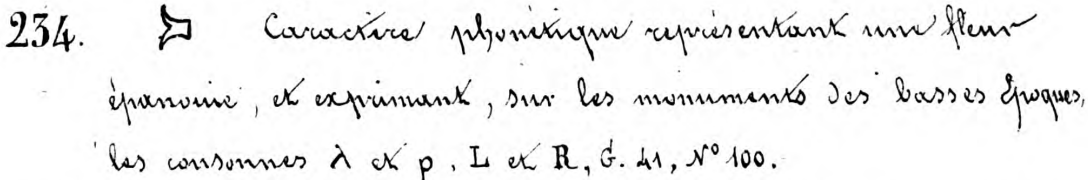 234. Caractère phonétique représentant une fleur
épanouie, et exprimant, sur les monuments des basses Époques,
les consonnes λ et ρ, L et R, G. 41, Nº 100.